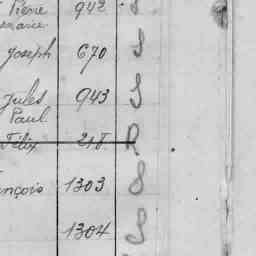 Pierre 942 S
Joseph 670 S
Jules 943 S
Paul
Félix 218 R
nçois 1303 S
1304 S